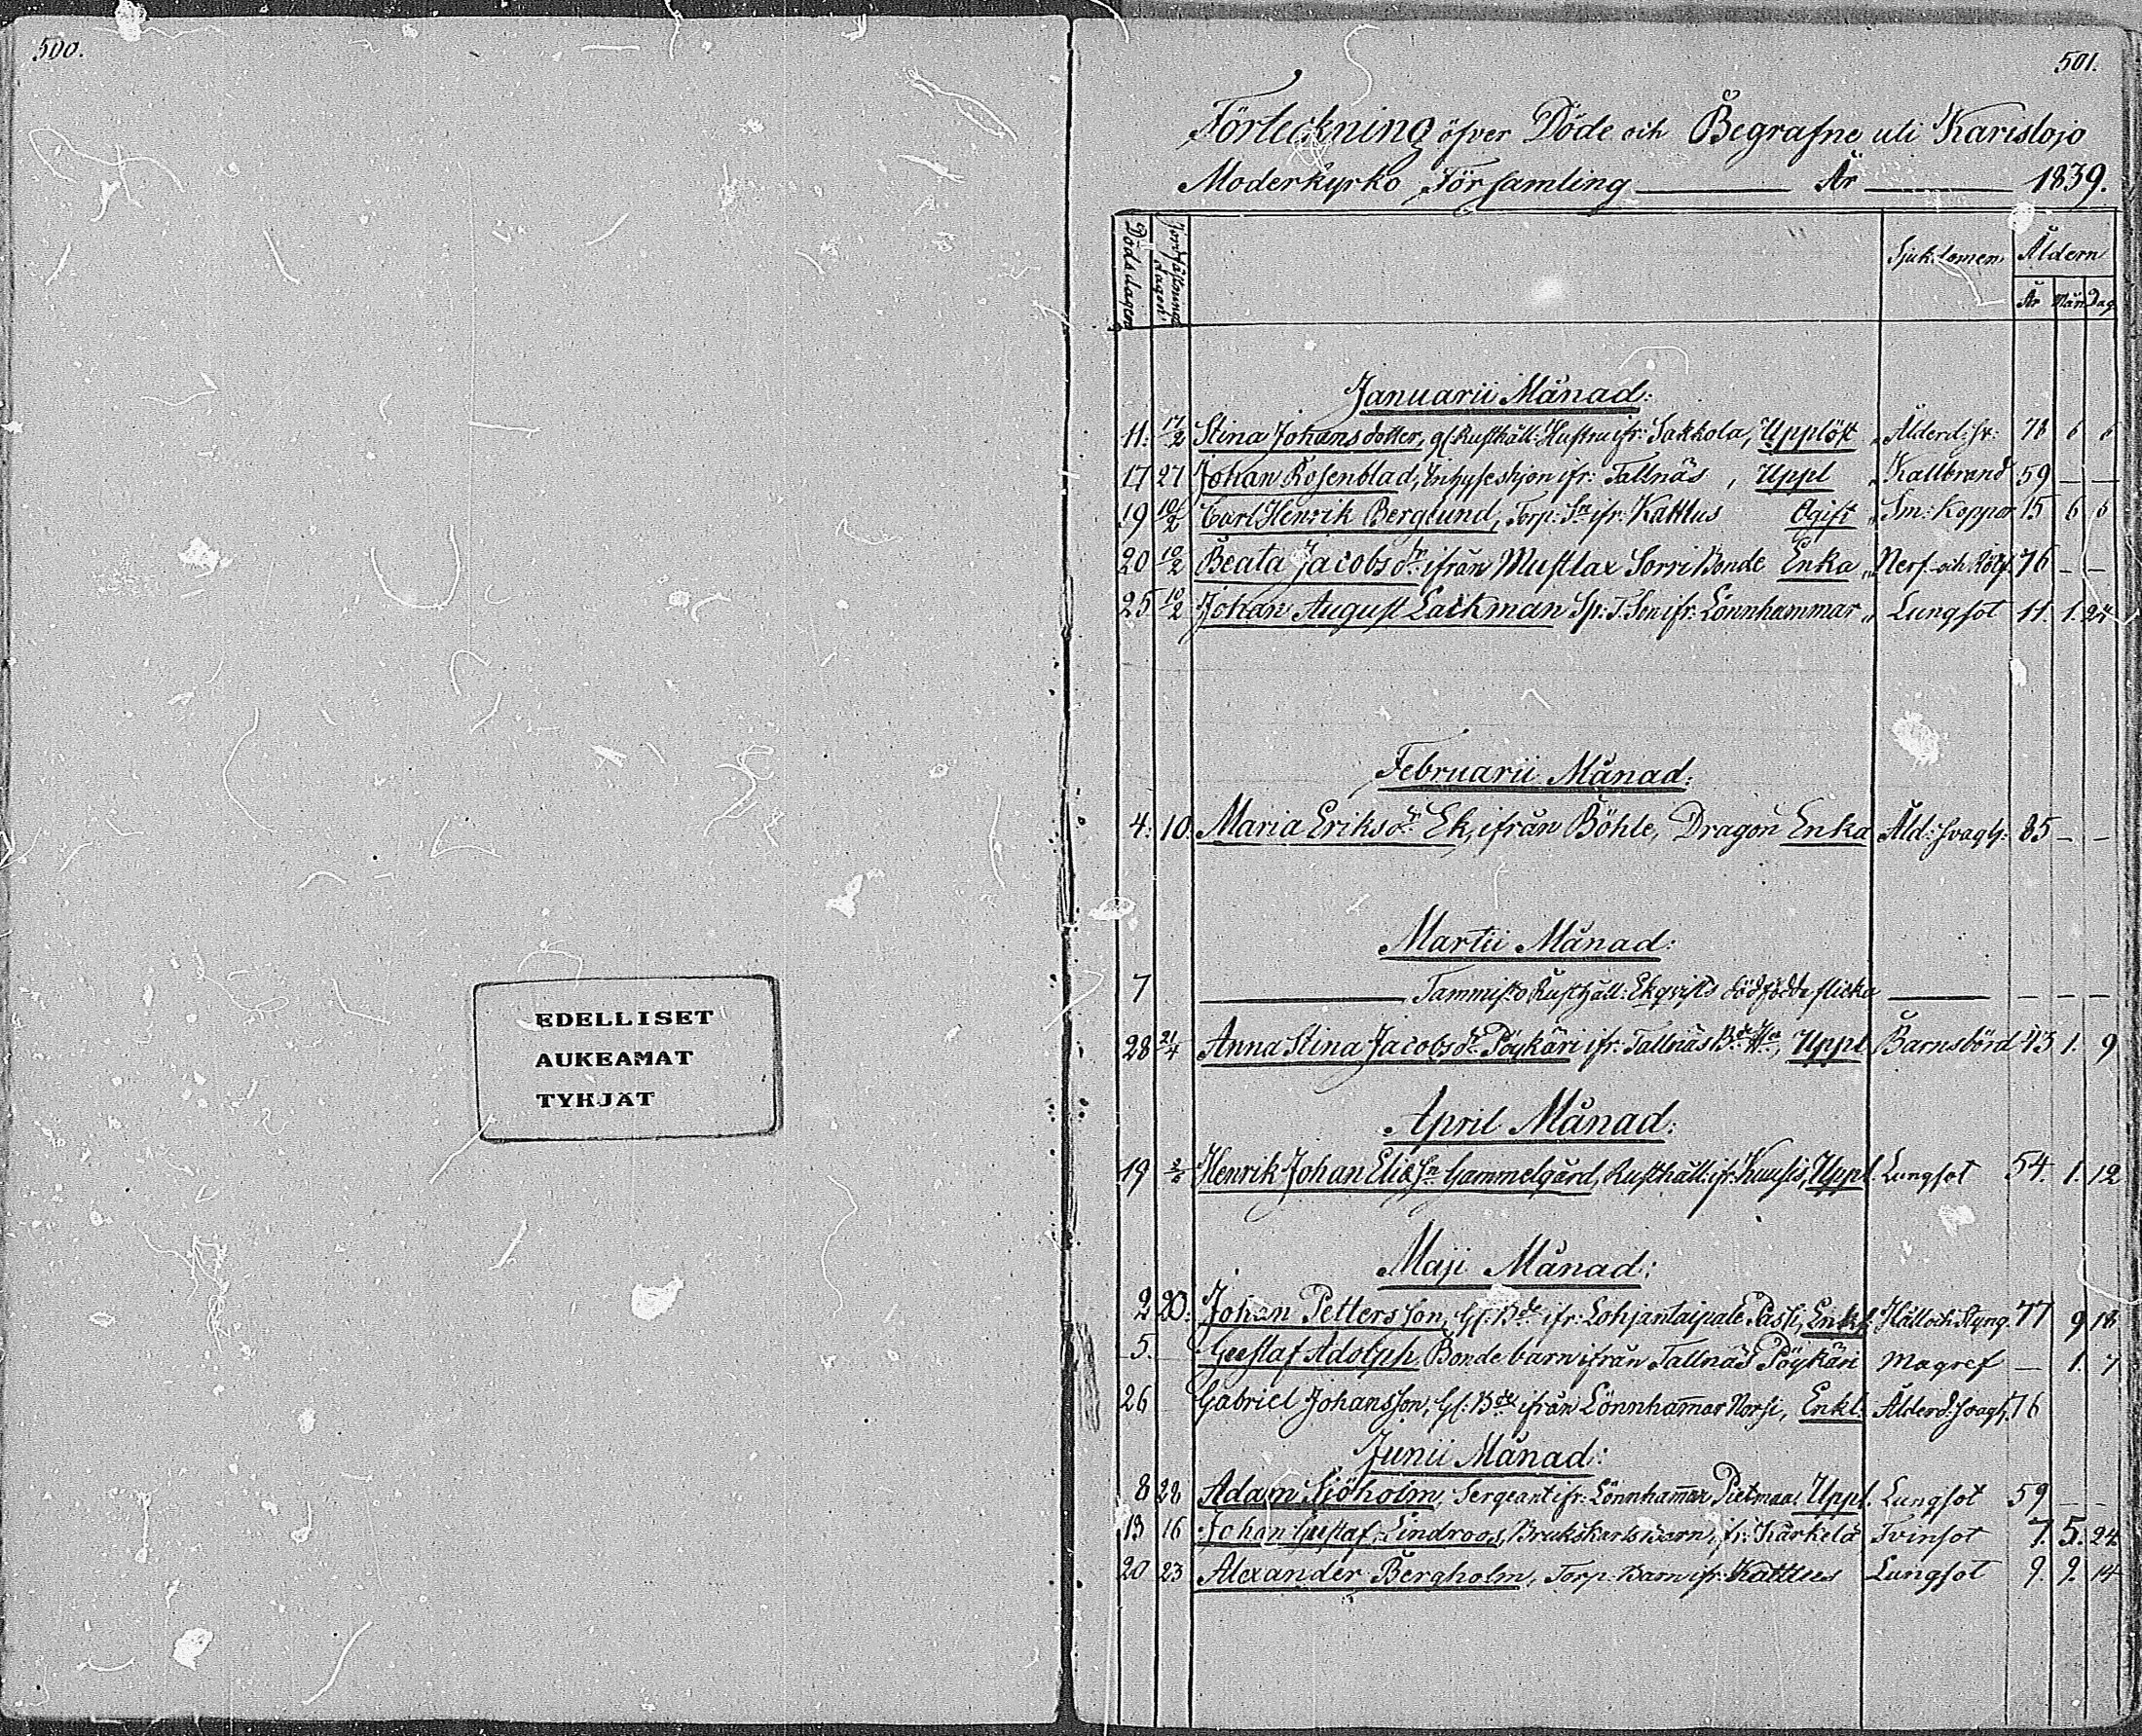 500.
EDELLISET
AUKEAMAT
TYHJÄT
501.
Förteckning öfver Döde och Begrafne uti Karislojo
Moderkyrko Församling År 1839.
Dödsdagen Jordfästnings dagen Sjukdomen Åldern
År Mån Dag
Januarii Månad:
11. 17/2 Stina Johansdotter, gl: Rusthåll: Hustru ifr: Sakkola, Upplöst Ålderd: sv: 78 6 6
17 27 Johan Rosenblad, Inhyseshjon ifr: Tallnäs, Uppl Kallbrand 59 — —
19 10/2 Carl Henrik Berglund, Torp: Sn ifr: Kattlus Ogift Sm: Koppor 15 6 8
20 10/2 Beata Jacobsdr ifrån Mustlax Sorri Bonde Enka Nerf- och Rötf: 76 — —
25 10/2 Johan August Lackman Sp: T. Son ifr: Lönnhammar Lungsot 11. 1. 24
Februarii Månad:
4. 10. Maria Eriksdr Ek, ifrån Böhle, Dragon Enka Åld: svagh: 85 — —
Martii Månad:
7 — Tammisto Rusthåll: Ekqvists dödfödda flicka — — — —
28 21/4 Anna Stina Jacobsdr Pöykäri ifr: Tallnäs Bde Hu, Uppl Barnsbörd 43 1. 9
April Månad:
19 Henrik Johan Elias Sn Gammelgård, Rusthåll: ifr: Kuusis, Uppl. Lungsot 54. 1. 12
Maji Månad:
2 20. Johan Pettersson, Gl: Bde ifr: Lohjantaipale Passi, Enkl Håll och Styng. 77 9 18
5. Gustaf Adolph, Bonde barn ifrån Tallnäs Pöykäri Magref — 1. 7
26 Gabriel Johansson, Gl: Bde ifrån Lönnhamar Norsi, Enkl. Ålderd: svagh. 76
Junii Månad:
8 28 Adam Sjöholm, Sergeant ifr: Lönnhamar Pietmaa. Uppl. Lungsot 59 — —
13 16 Johan Gustaf Lindroos, Brukskarls Barn, ifr: Kärkelä Tvinsot 7. 5. 24
20 23 Alexander Bergholm, Torp: Barn ifr: Kattlus Lungsot 9. 9. 14